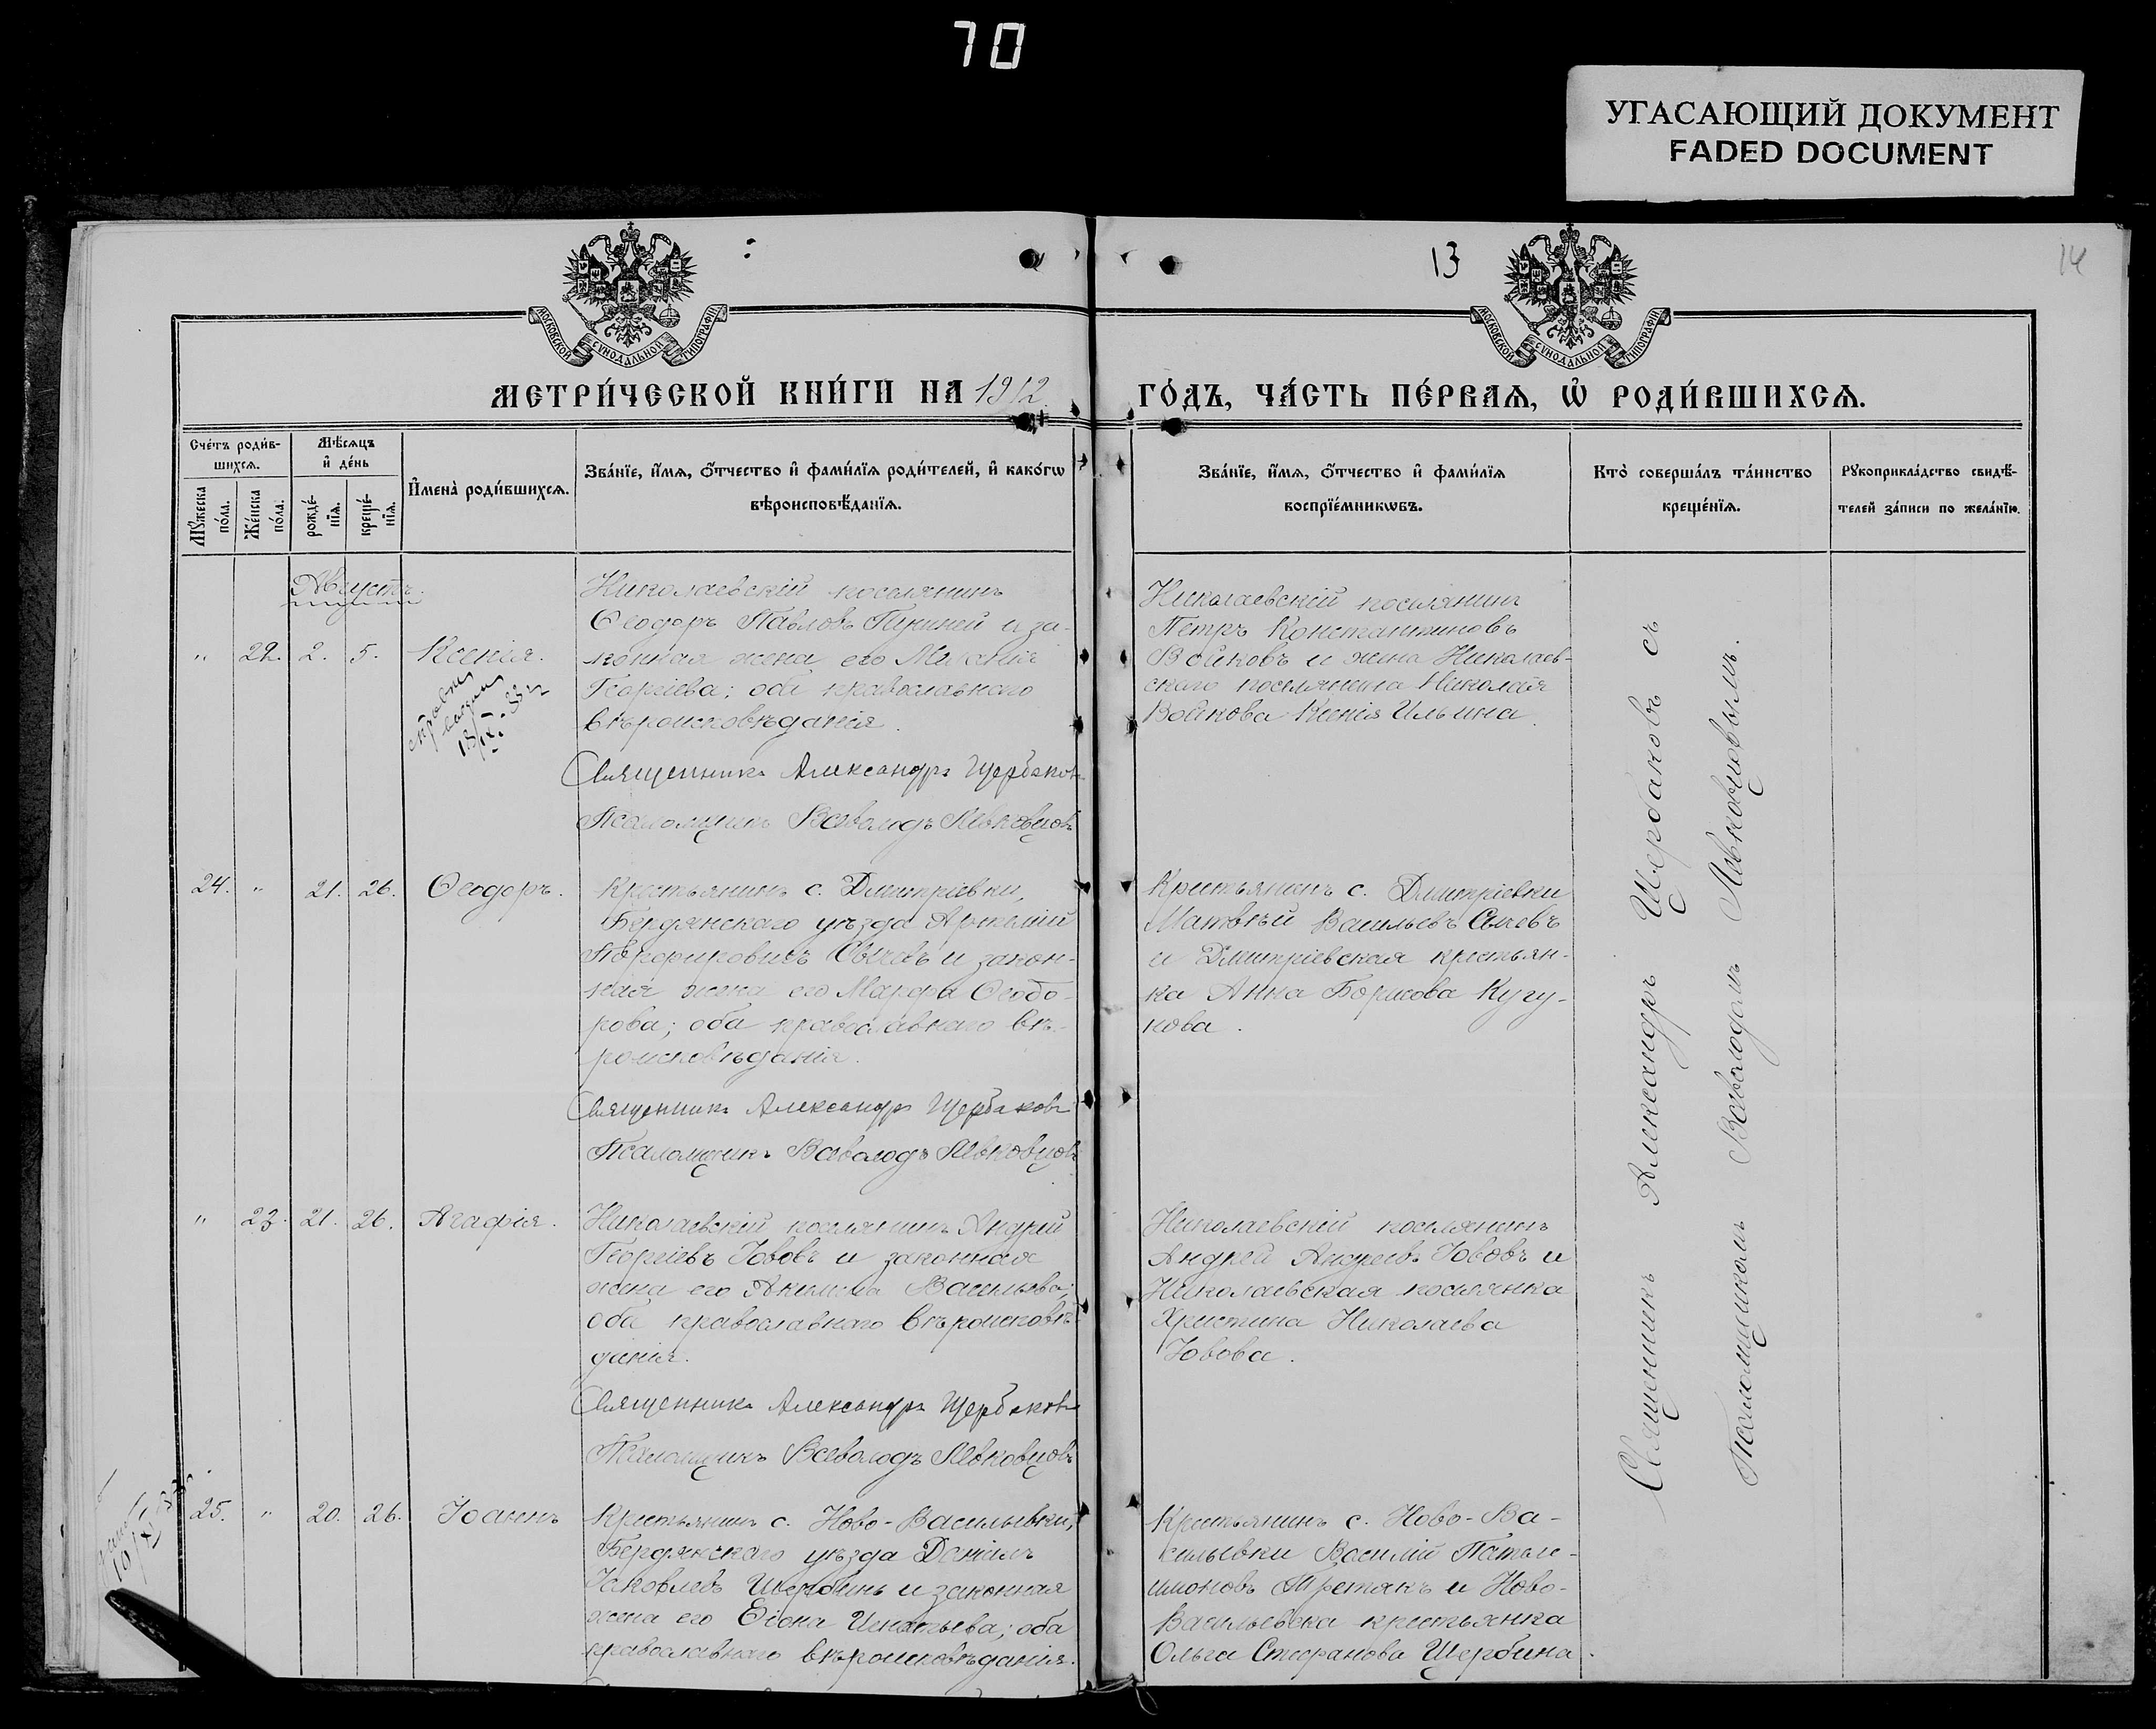 70
УГАСАЮЩИЙ ДОКУМЕНТ
FADED DOCUMENT
13
14
МОСКОВСКОЙ СѴНОДАЛЬНОЙ ТИПОГРАФІИ
МОСКОВСКОЙ СѴНОДАЛЬНОЙ ТИПОГРАФІИ
МЕТРИ́ЧЕСКОЙ КНИ́ГИ НА 1912
ГО́ДЪ, ЧА́СТЬ ПЕ́РВАѦ, Ѡ҆ РОДИ́ВШИХСѦ.
Сче́тъ роди́в-
шихсѧ.
Мꙋ́жеска
по́ла.
Же́нска
по́ла.
Мѣ́сѧцъ
и҆ де́нь
рожде́-
нїѧ.
креще́-
нїѧ.
И҆мена̀ роди́вшихсѧ.
Зва́нїе, и҆́мѧ, ѻ҆́тчество и҆ фами́лїѧ роди́телей, и҆ како́гѡ
вѣроисповѣ́данїѧ.
Зва́нїе, и҆́мѧ, ѻ҆́тчество и҆ фами́лїѧ
воспрїе́мникѡвъ.
Кто̀ соверша́лъ та́инство
креще́нїѧ.
Рꙋкоприкла́дство свидѣ́-
телей за́писи по жела́нїю.
Августъ.
" 22. 2. 5. Ксенія.
18/IX 33 г
Николаевскій поселянинъ
Ѳеодоръ Павловъ и за-
конная жена его Меланія
Георгіева; оба православнаго
вѣроисповѣданія.
Священникъ Александръ Щербаковъ
Псаломщикъ Всеволодъ Левковцовъ
Николаевскій поселянинъ
Петръ Константиновъ
Войковъ и жена Николаев-
скаго поселянина Николая
Войкова Ксенія Ильина.
24. " 21. 26. Ѳеодоръ.
Крестьянинъ с. Дмитріевки,
Бердянскаго уѣзда Артемій
Порфировичъ Сычевъ и закон-
ная жена его Марфа Ѳеодо-
рова; оба православнаго вѣ-
роисповѣданія.
Священникъ Александръ Щербаковъ
Псаломщикъ Всеволодъ Левковцовъ
Крестьянинъ с. Дмитріевки
Матвѣй Васильевъ Сычевъ
и Дмитріевская крестьян-
ка Анна Борисова Кугу-
кова.
" 23. 21. 26. Агафія.
Николаевскій поселянинъ Андрей
Георгіевъ Іововъ и законная
жена его Акилина Васильева;
оба православнаго вѣроисповѣ-
данія.
Священникъ Александръ Щербаковъ
Псаломщикъ Всеволодъ Левковцовъ
Николаевскій поселянинъ
Андрей Андреевъ Іововъ и
Николаевская поселянка
Христина Николаева
Іовова.
25. " 20. 26. Іоаннъ
Крестьянинъ с. Ново-Васильевки,
Бердянскаго уѣзда Даніилъ
Іаковлевъ Щербина и законная
жена его Игнатьева; оба
православнаго вѣроисповѣданія.
Крестьянинъ с. Ново-Ва-
сильевки Василій Пантеле-
имоновъ Третякъ и Ново-
Васильевска крестьянка
Ольга Стефанова Щербина.
Священникъ Александръ Щербаковъ съ
Псаломщикомъ Всеволодомъ Левковцовымъ.